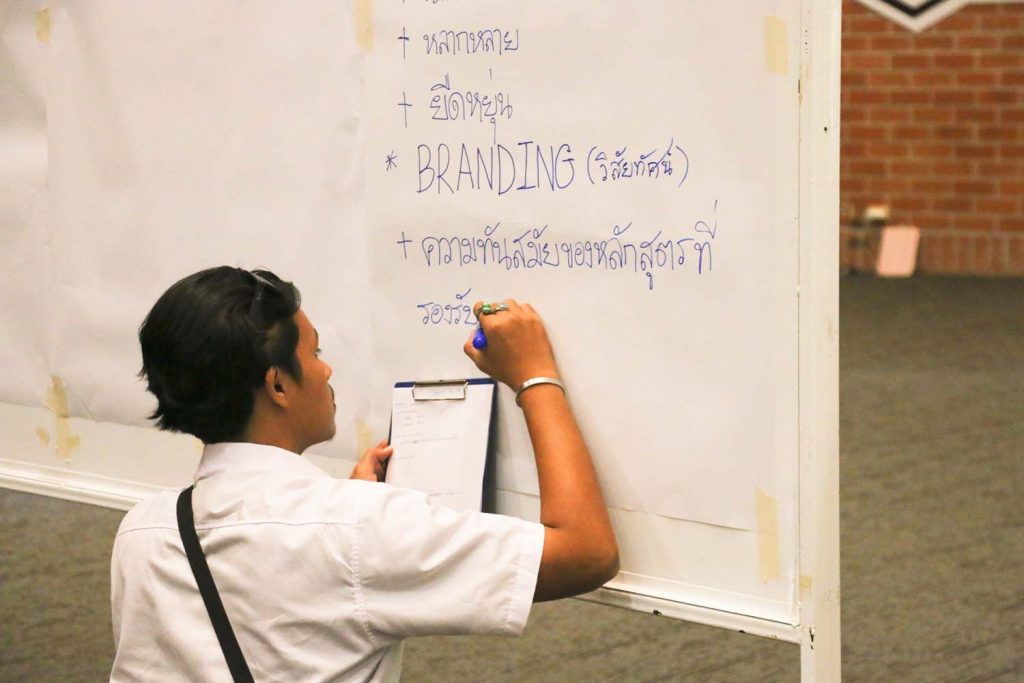 + หลากหลาย
+ ยืดหยุ่น
* BRANDING (วิสัยทัศน์)
+ ความทันสมัยของหลักสูตรที่
รองรับ